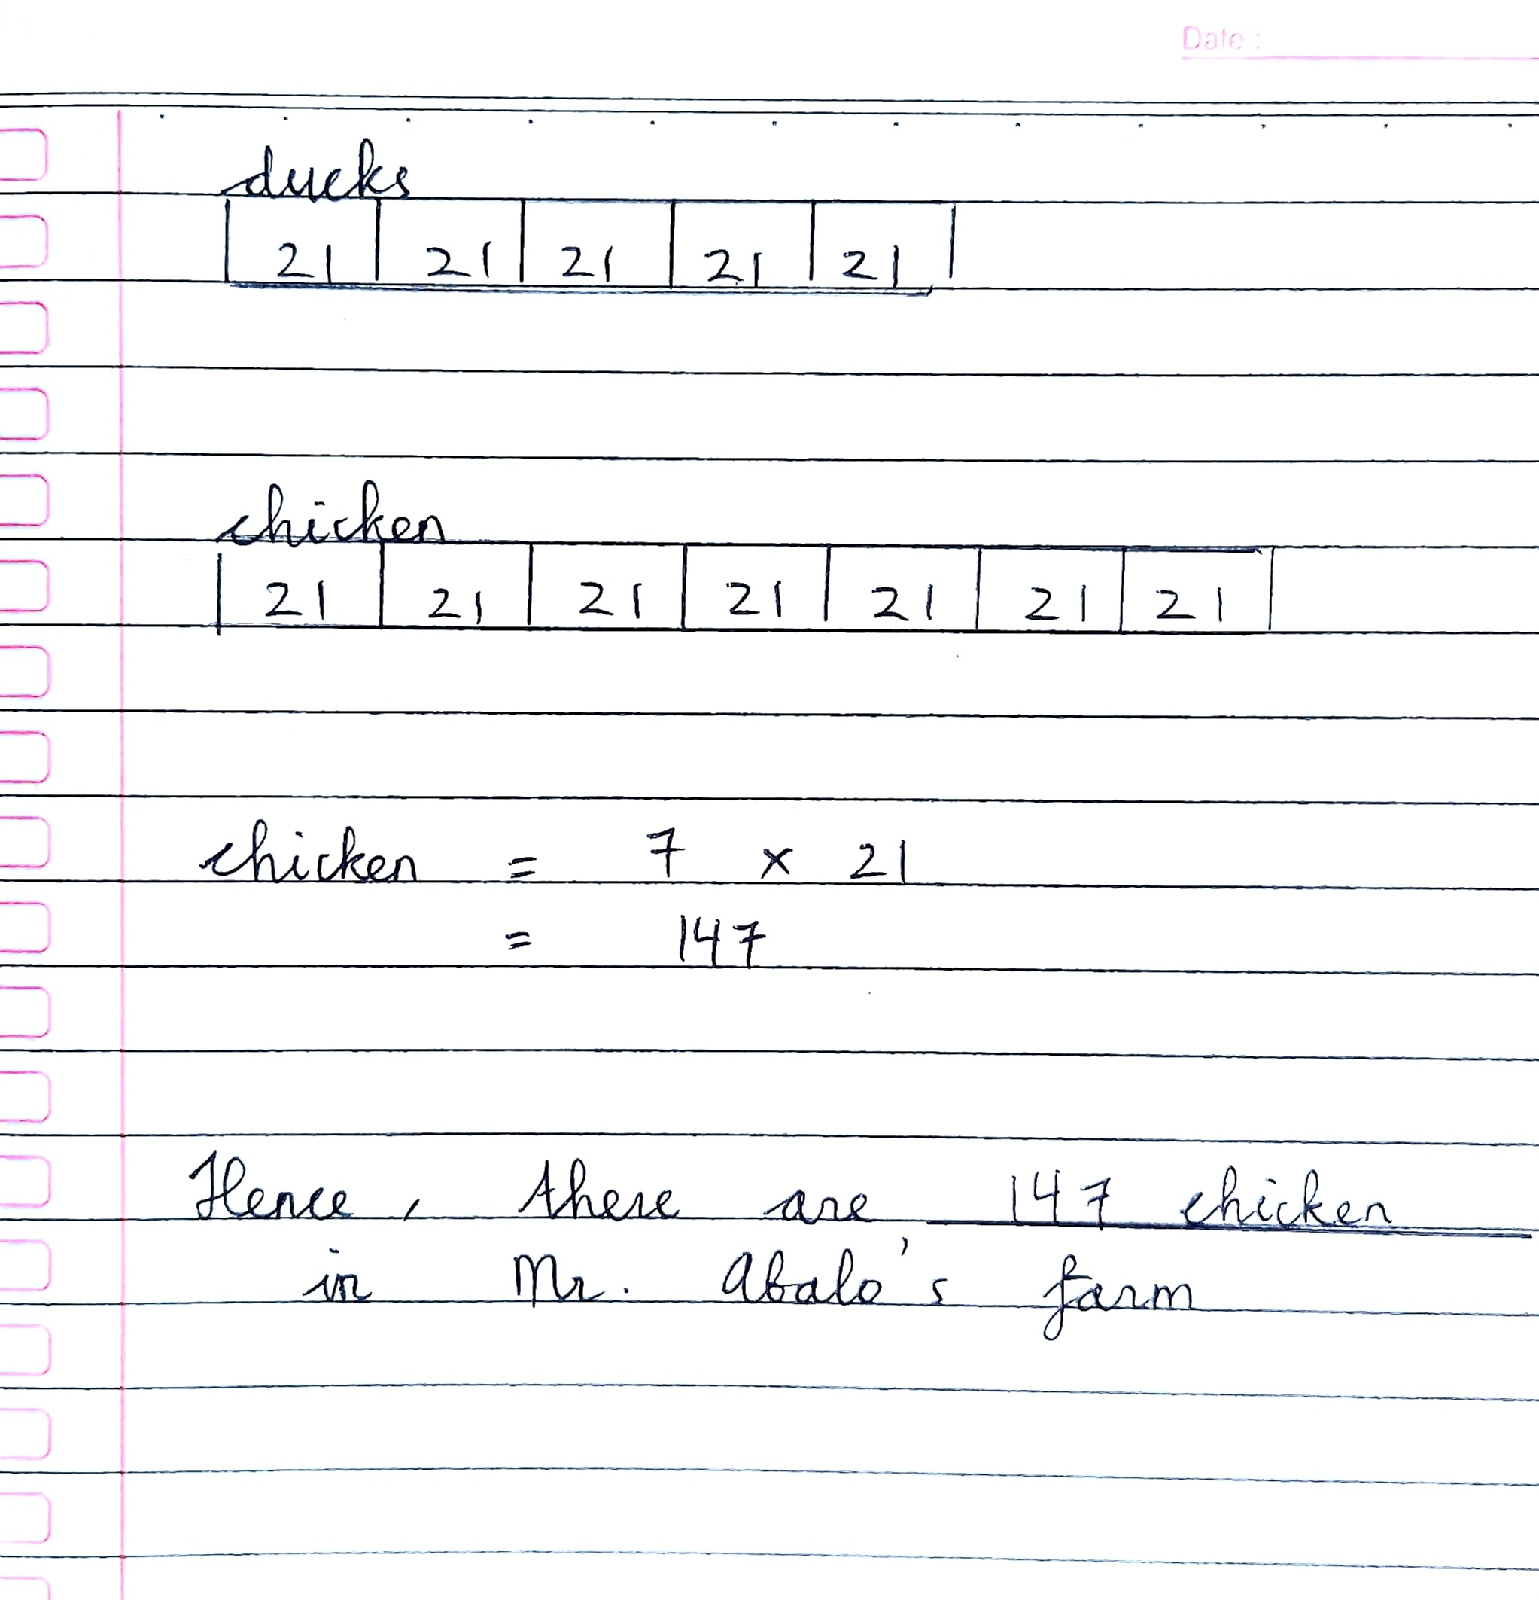 Date :
ducks
21 21 21 21 21
chicken
21 21 21 21 21 21 21
chicken = 7 x 21
= 147
Hence, there are 147 chicken
in Mr. Abalo's farm